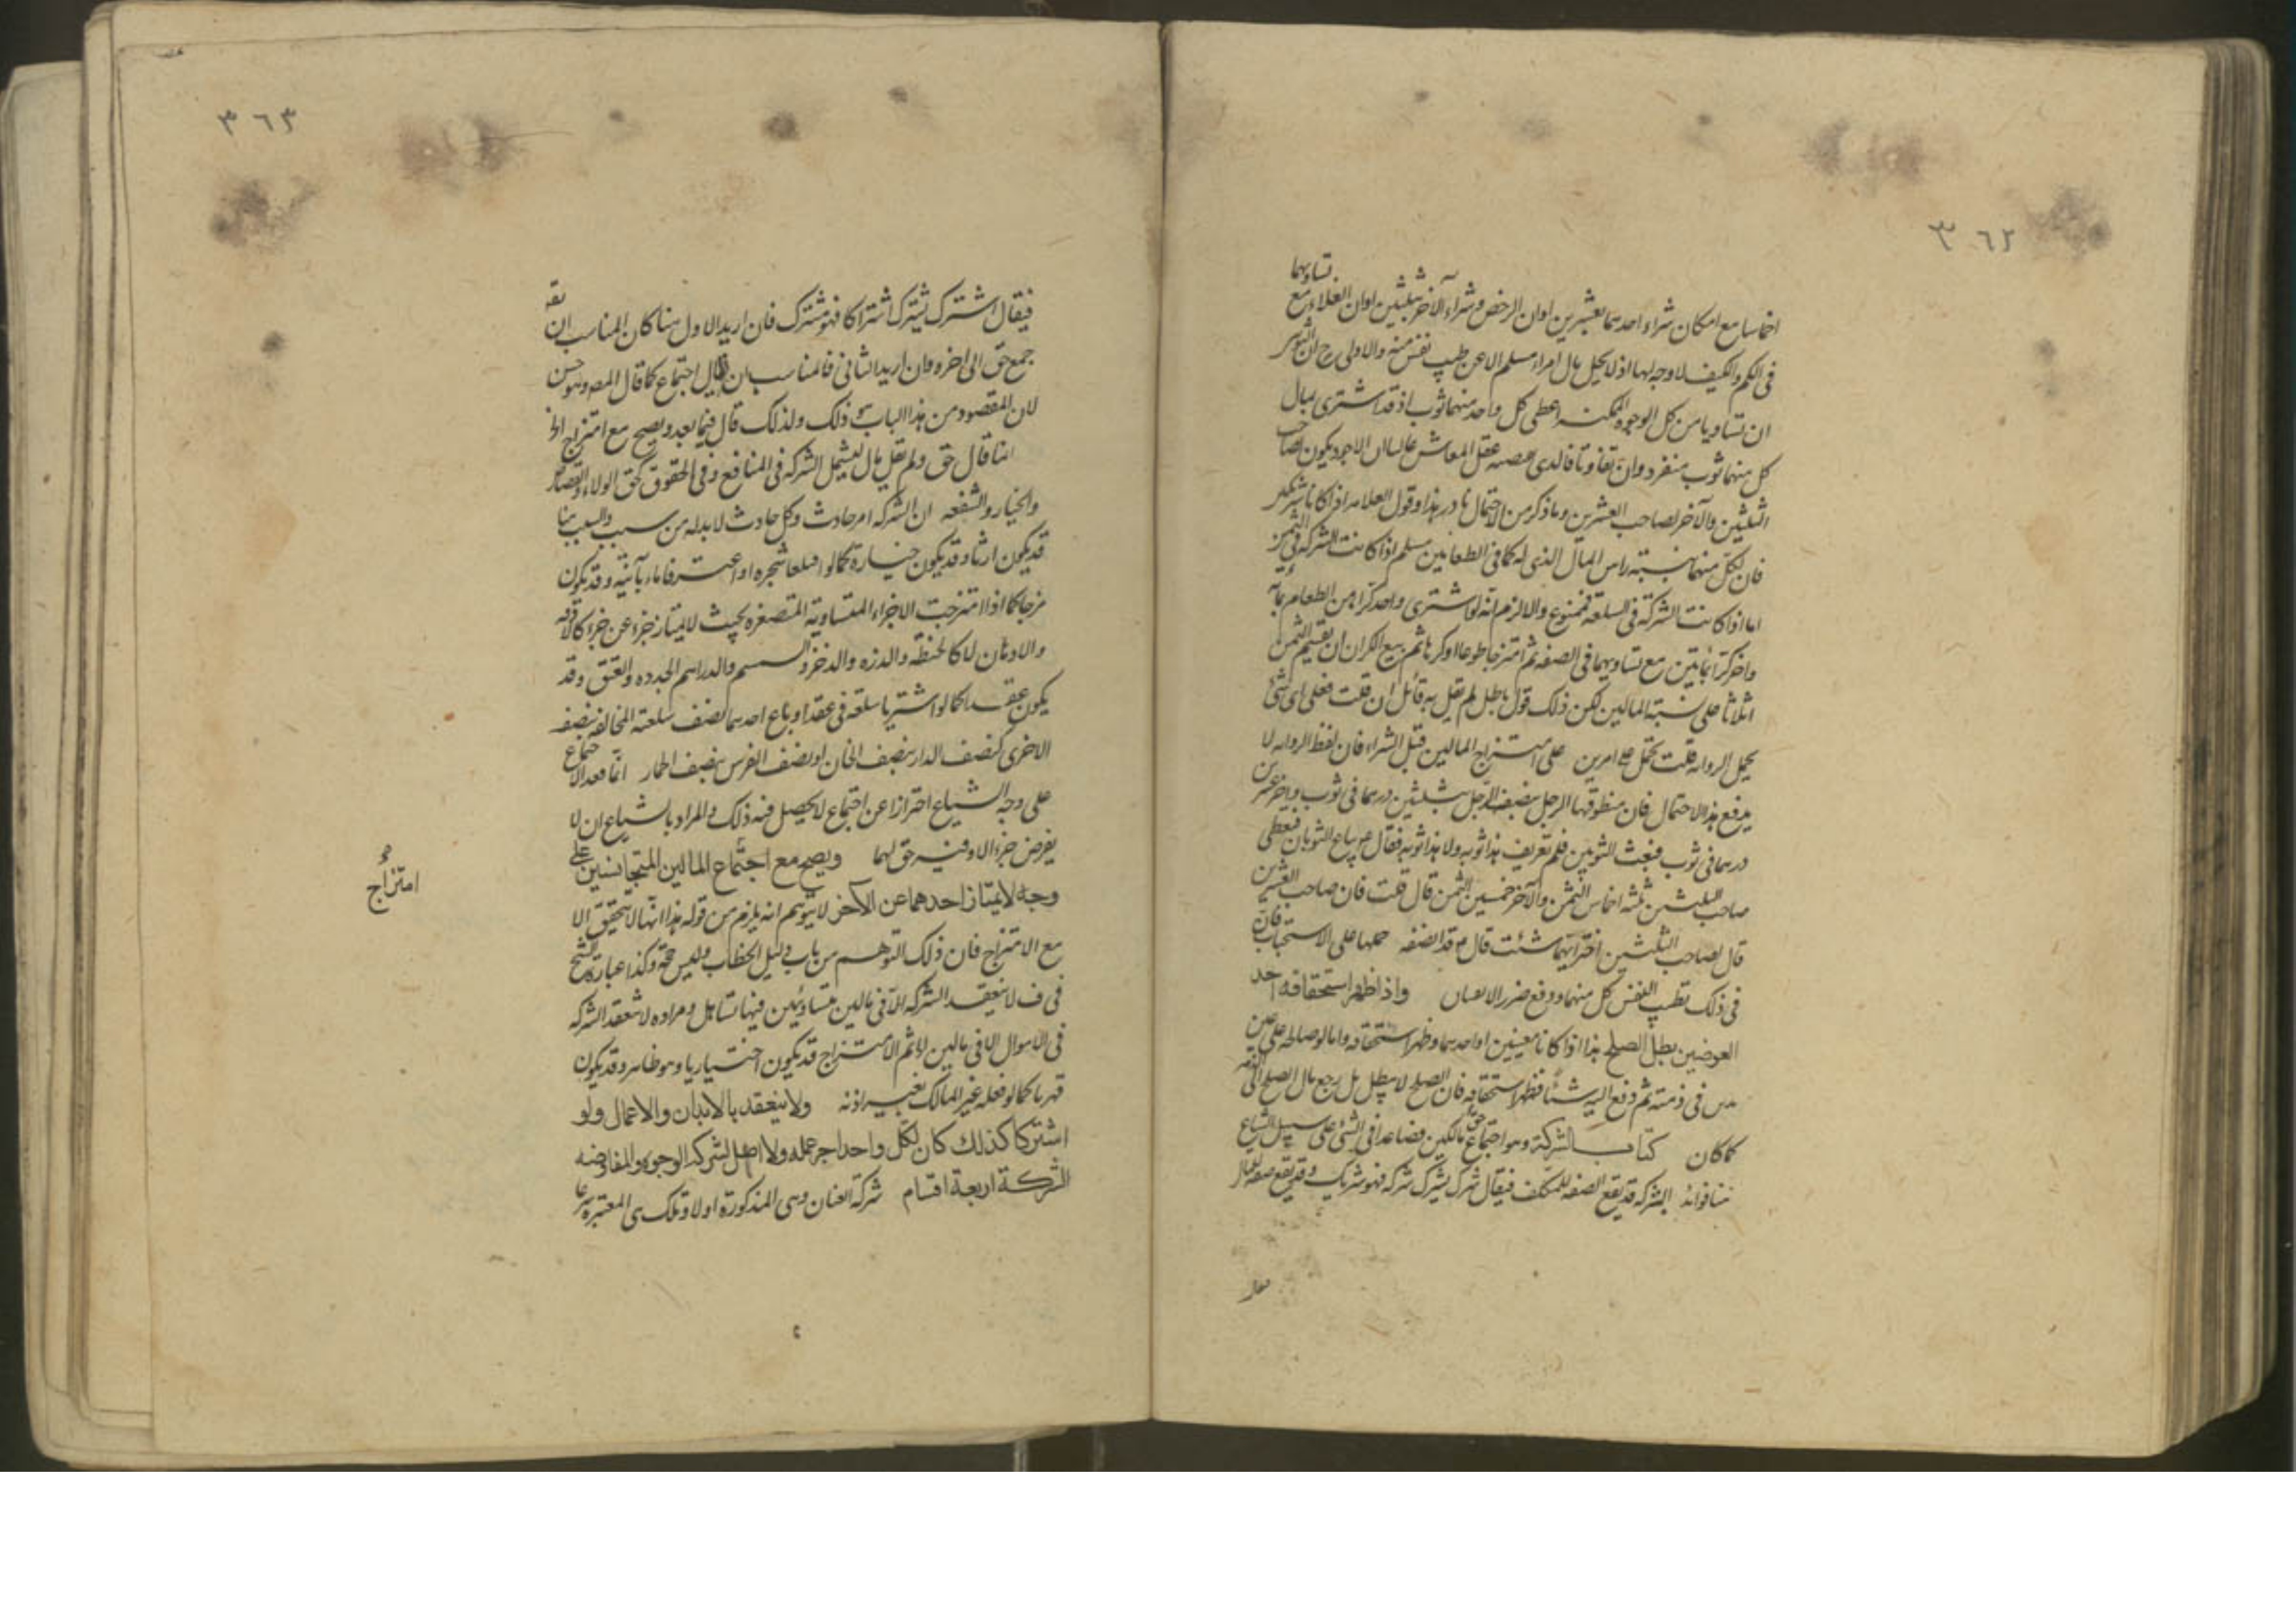 ٣٦٢
تساويهما
اخماسا مع امكان شراء احدهما بعشرين اوان الرخص وشراء الآخر بثلثين اوان الغلاء مع
فى الكم والكيف لا وجه لها اذ لا يحل مال امراء مسلم الا عن طيب نفس منه والاولى ح ان
ان تساويا من كل الوجوه الممكنه اعطى كل واحد منهما ثوب اذ قد اشترى بمال
كل منهما ثوب منفرد وان تفاوتا فالذى عقل المعاش الاجود يكون لصاحب
الثلثين والآخر لصاحب العشرين وما ذكر من الاحتمال نادر هذا وقول العلامه اذا كانا
فان لكل منهما بنسبة راس المال الذى له كما فى الطعامين مسلم اذا كانت الشركه فى الثمن
اما اذا كانت الشركة فى السلعة فممنوع والا لزم انه لو اشترى واحد كرا من الطعام بمائة
واخر كرا بمائتين مع تساويهما فى الصفه ثم امتزجا طوعا او كرها ثم بيع الكران ان يقسم الثمن
اثلاثا على نسبة المالين لكن ذلك قول باطل لم يقل به قائل ان قلت فعلى اى شئ
يحمل الروايه قلت تحمل على امرين على امتزاج المالين قبل الشراء فان لفظ الروايه لا
يدفع هذا الاحتمال فان منطوقها الرجل يبضعه الرجل بثلثين درهما فى ثوب واخر عشرين
درهما فى ثوب فبعث الثوبين فلم تعريف هذا ثوبه ولا هذا ثوبه فقال يباع الثوبان فيعطى
صاحب الثلثين ثلثه اخماس الثمن والآخر خمسين الثمن قال قلت فان صاحب العشرين
قال لصاحب الثلثين اختر ايهما شئت قال قد انصفه حملها على الاستحباب فان
فى ذلك تطيب النفس كل منهما ودفع ضرر واذا ظهر استحقاقه احد
العوضين بطل الصلح هذا اذا كانا معينين او احدهما وظهر استحقاقه واما لو صالحه على عين
فى ذمته ثم دفع اليه شئا فظهر استحقاقه فان الصلح لا يبطل بل رجع مال الصلح الى الذمه
كما كان كتاب الشركة وهو اجتماع حق مالكين فصاعدا فى الشئ على سبيل الشياع
هنا فوائد الشركه قد يقع الصفه للمكلف فيقال شرك يشرك شركه فهو شريك وقد يقع صفه للمال
٣٦٣
فيقال اشترك يشترك اشتراكا فهو مشترك فان اريد الاول هنا كان المناسب ان يقه
جمع حق الى اخره وان اريد الثانى فالمناسب ان يقال اجتماع كما قال المصه وهو حسن
لان المقصود من هذا الباب ذلك ولذلك قال فيما بعد ويصح مع امتزاج
انما قال حق ولم يقل مال ليشمل الشركه فى المنافع وفى الحقوق كحق الولاء والقصاص
والخيار والشفعه ان الشركه امر حادث وكل حادث لا بد له من سبب والسبب هنا
قد يكون ارثا وقد يكون حيازة كما لو اقتلعا شجره او اعترفا ماء بآنيه وقد يكون
مزجا كما اذا امتزجت الاجزاء المتساوية المتصغره بحيث لا يمتاز جزء عن جزء
والادهان كالحنطه والذره والدخن والسمسم والدراهم الجدده والعتق وقد
يكون عقدا كما لو اشتريا سلعة فى عقد او باع احدهما نصف سلعته المخالفه بنصف
الاخرى كنصف الدار بنصف الخان او نصف الفرس بنصف الحمار انما قيد الاجتماع
على وجه الشياع احترازا عن اجتماع لا يحصل فيه ذلك والمراد بالشياع ان لا
يفرض جزء الا وفيه حق لهما ويصح مع اجتماع المالين المتجانسين على
امتزاج
وجه لا يمتاز احدهما عن الآخر لا يتوهم انه يلزم من قوله هذا انها لا يتحقق الا
مع الامتزاج فان ذلك التوهم من باب دليل الخطاب وليس حجة وكذا عبارة الشيخ
فى ف لا ينعقد الشركه الا فى مالين متساويين فيها تساهل ومراده لا تنعقد الشركه
فى الاموال الا فى مالين ثم الامتزاج قد يكون اختياريا وهو ظاهر وقد يكون
قهريا كما لو فعله غير المالك بغير اذنه ولا ينعقد بالابدان والاعمال ولو
اشتركا كذلك كان لكل واحد اجر عمله ولا اصل لشركه الوجوه والمفاوضه
الشركة اربعة اقسام شركة العنان وهى المذكورة اولا وتلك هى المعتبره شرعا